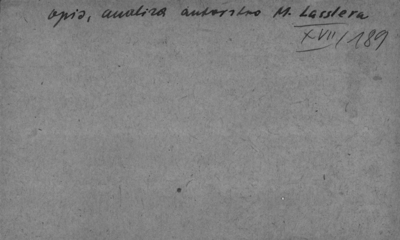 opis, analiza autorstwo M. Lasslera
XVII/189